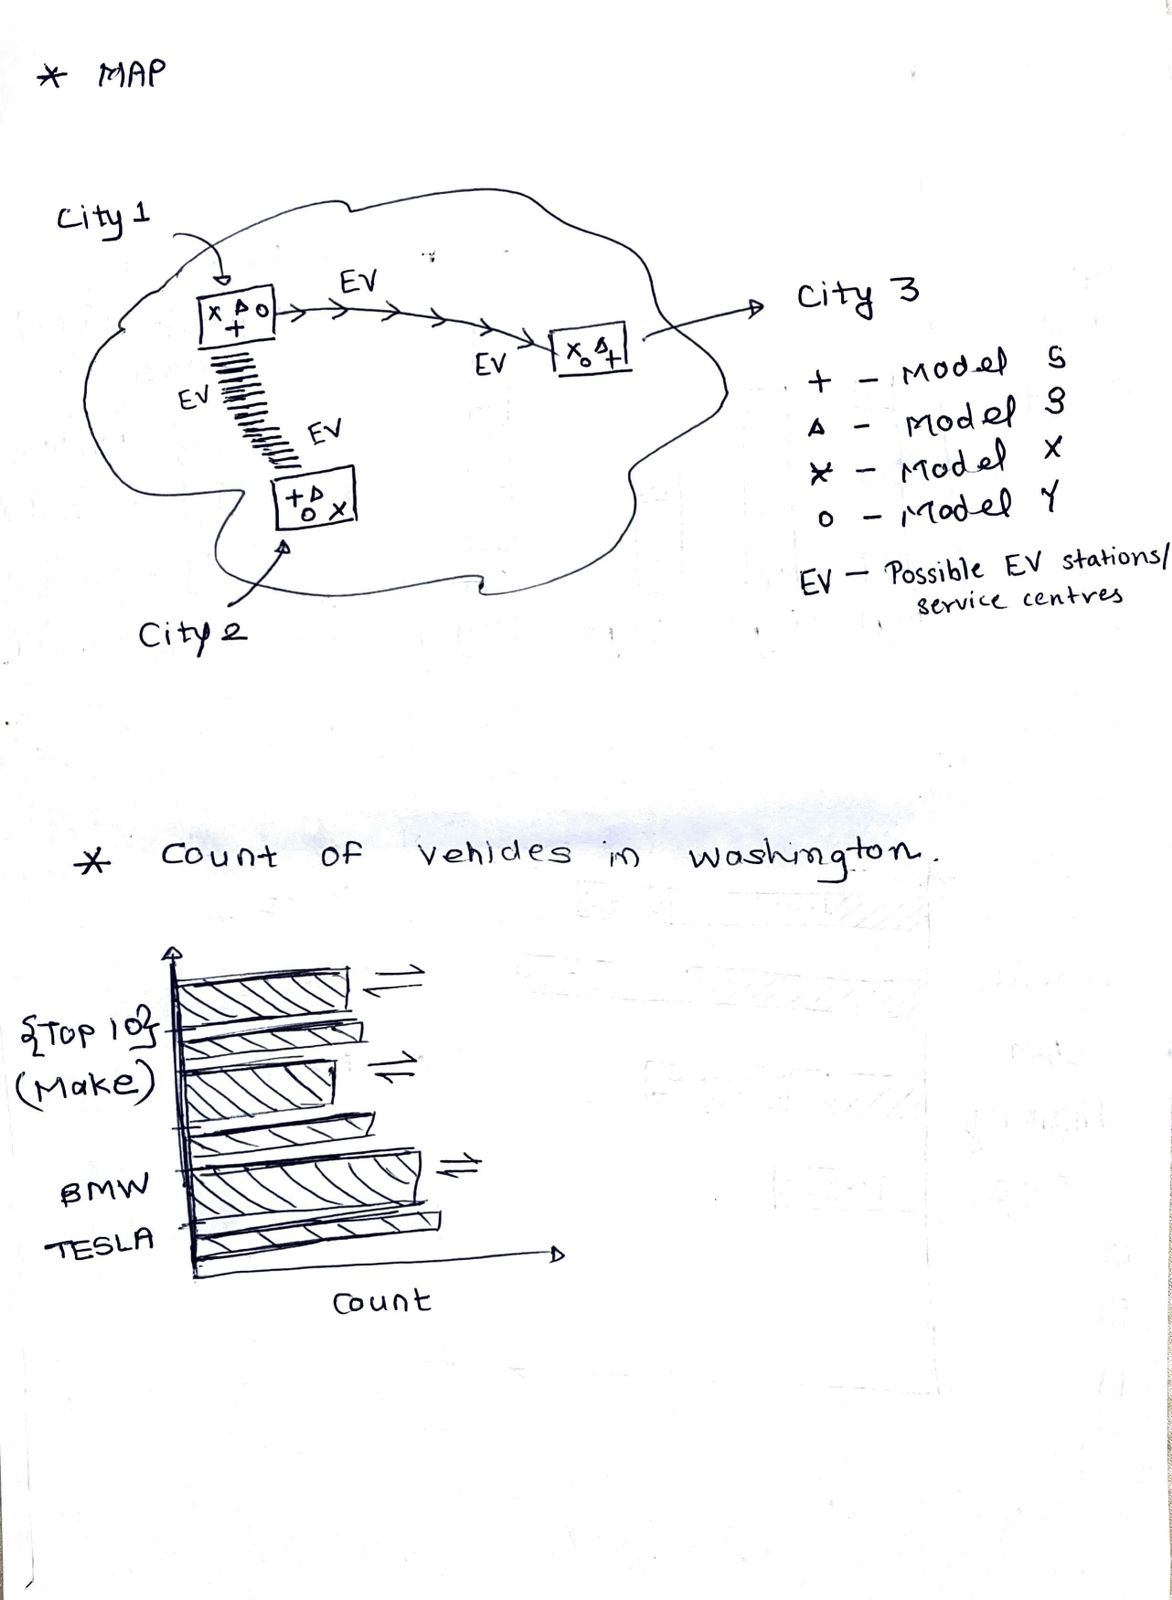 * MAP
City 1
x △ o
+
EV
EV
x △
o +
City 3
EV
EV
+ △
o x
City 2
+ - Model S
△ - Model 3
* - Model X
o - Model Y
EV - Possible EV stations/
service centres
* Count of vehicles in Washington.
{Top 10}
(Make)
BMW
TESLA
Count